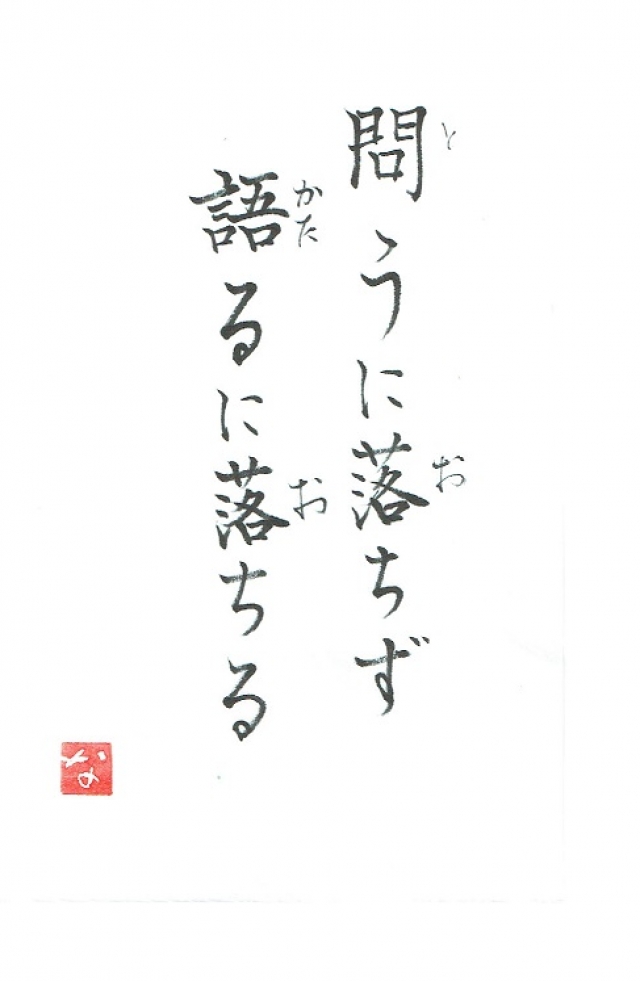 問うに落ちず
と
お
語るに落ちる
かた
お
な